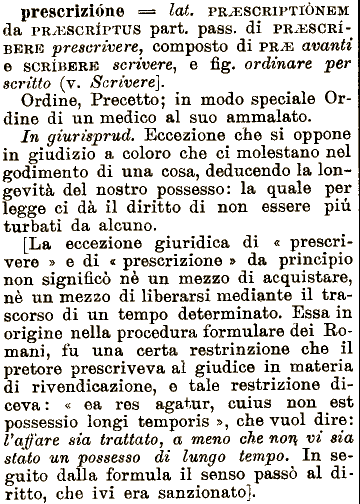 prescrizióne = lat. PRÆSCRIPTIÒNEM
da PRÆSCRÍPTUS part. pass. di PRÆSCRÍ-
BERE prescrivere, composto di PRÆ avanti
e SCRÍBERE scrivere, e fig. ordinare per
scritto (v. Scrivere].
Ordine, Precetto; in modo speciale Or-
dine di un medico al suo ammalato.
In giurisprud. Eccezione che si oppone
in giudizio a coloro che ci molestano nel
godimento di una cosa, deducendo la lon-
gevità del nostro possesso: la quale per
legge ci dà il diritto di non essere più
turbati da alcuno.
[La eccezione giuridica di « prescri-
vere » e di « prescrizione » da principio
non significò nè un mezzo di acquistare,
nè un mezzo di liberarsi mediante il tra-
scorso di un tempo determinato. Essa in
origine nella procedura formulare dei Ro-
mani, fu una certa restrinzione che il
pretore prescriveva al giudice in materia
di rivendicazione, e tale restrizione di-
ceva: « ea res agatur, cuius non est
possessio longi temporis », che vuol dire:
l'affare sia trattato, a meno che non vi sia
stato un possesso di lungo tempo. In se-
guito dalla formula il senso passò al di-
ritto, che ivi era sanzionato].